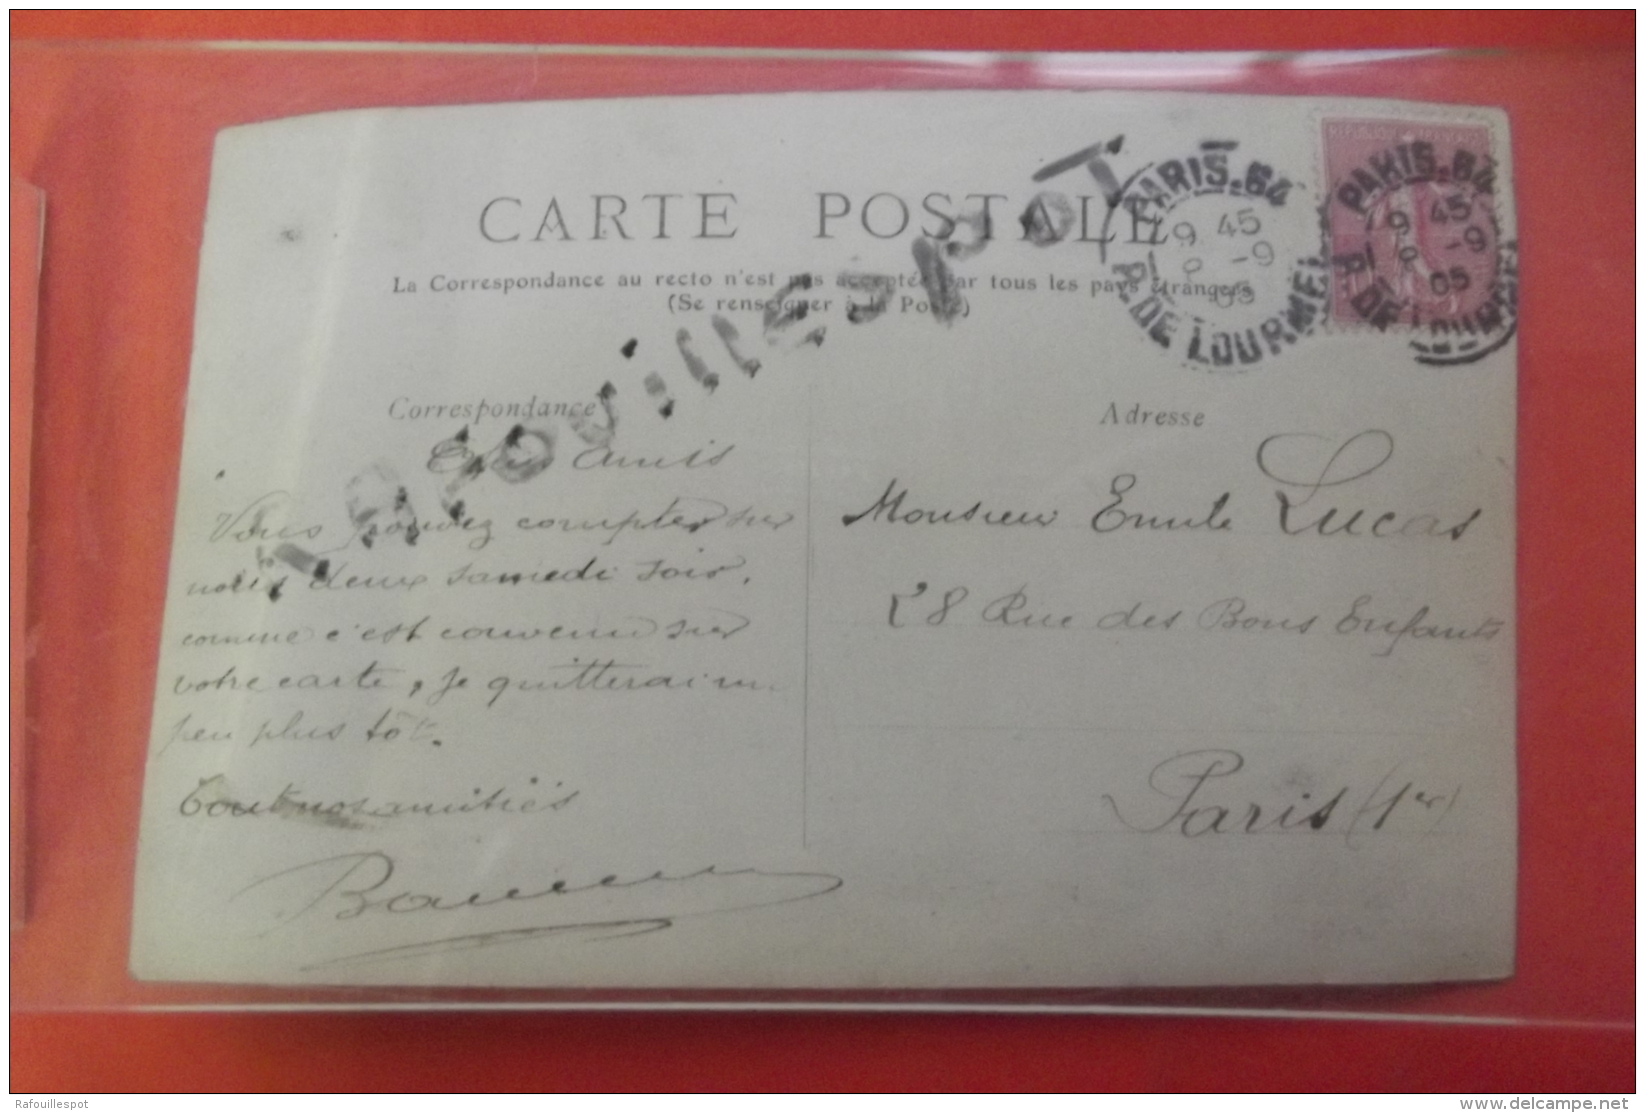 CARTE POSTALE
La Correspondance au recto n'est pas acceptée par tous les pays étrangers
(Se renseigner à la Poste)
REPUBLIQUE FRANCAISE
PARIS.64
9 45
8 -9
05
R. DE LOURMEL
PARIS.64
9 45
8 -9
05
R. DE LOURMEL
Rafouillespot
Correspondance
Adresse
Chers Amis
Vous pouvez compter sur
nous deux samedi soir,
comme c'est convenu sur
votre carte, je quitterai un
peu plus tôt.
Tout nos amitiés
Monsieur Emile Lucas
28 Rue des Bons Enfants
Paris (1er)
Rafouillespot
www.delcampe.net